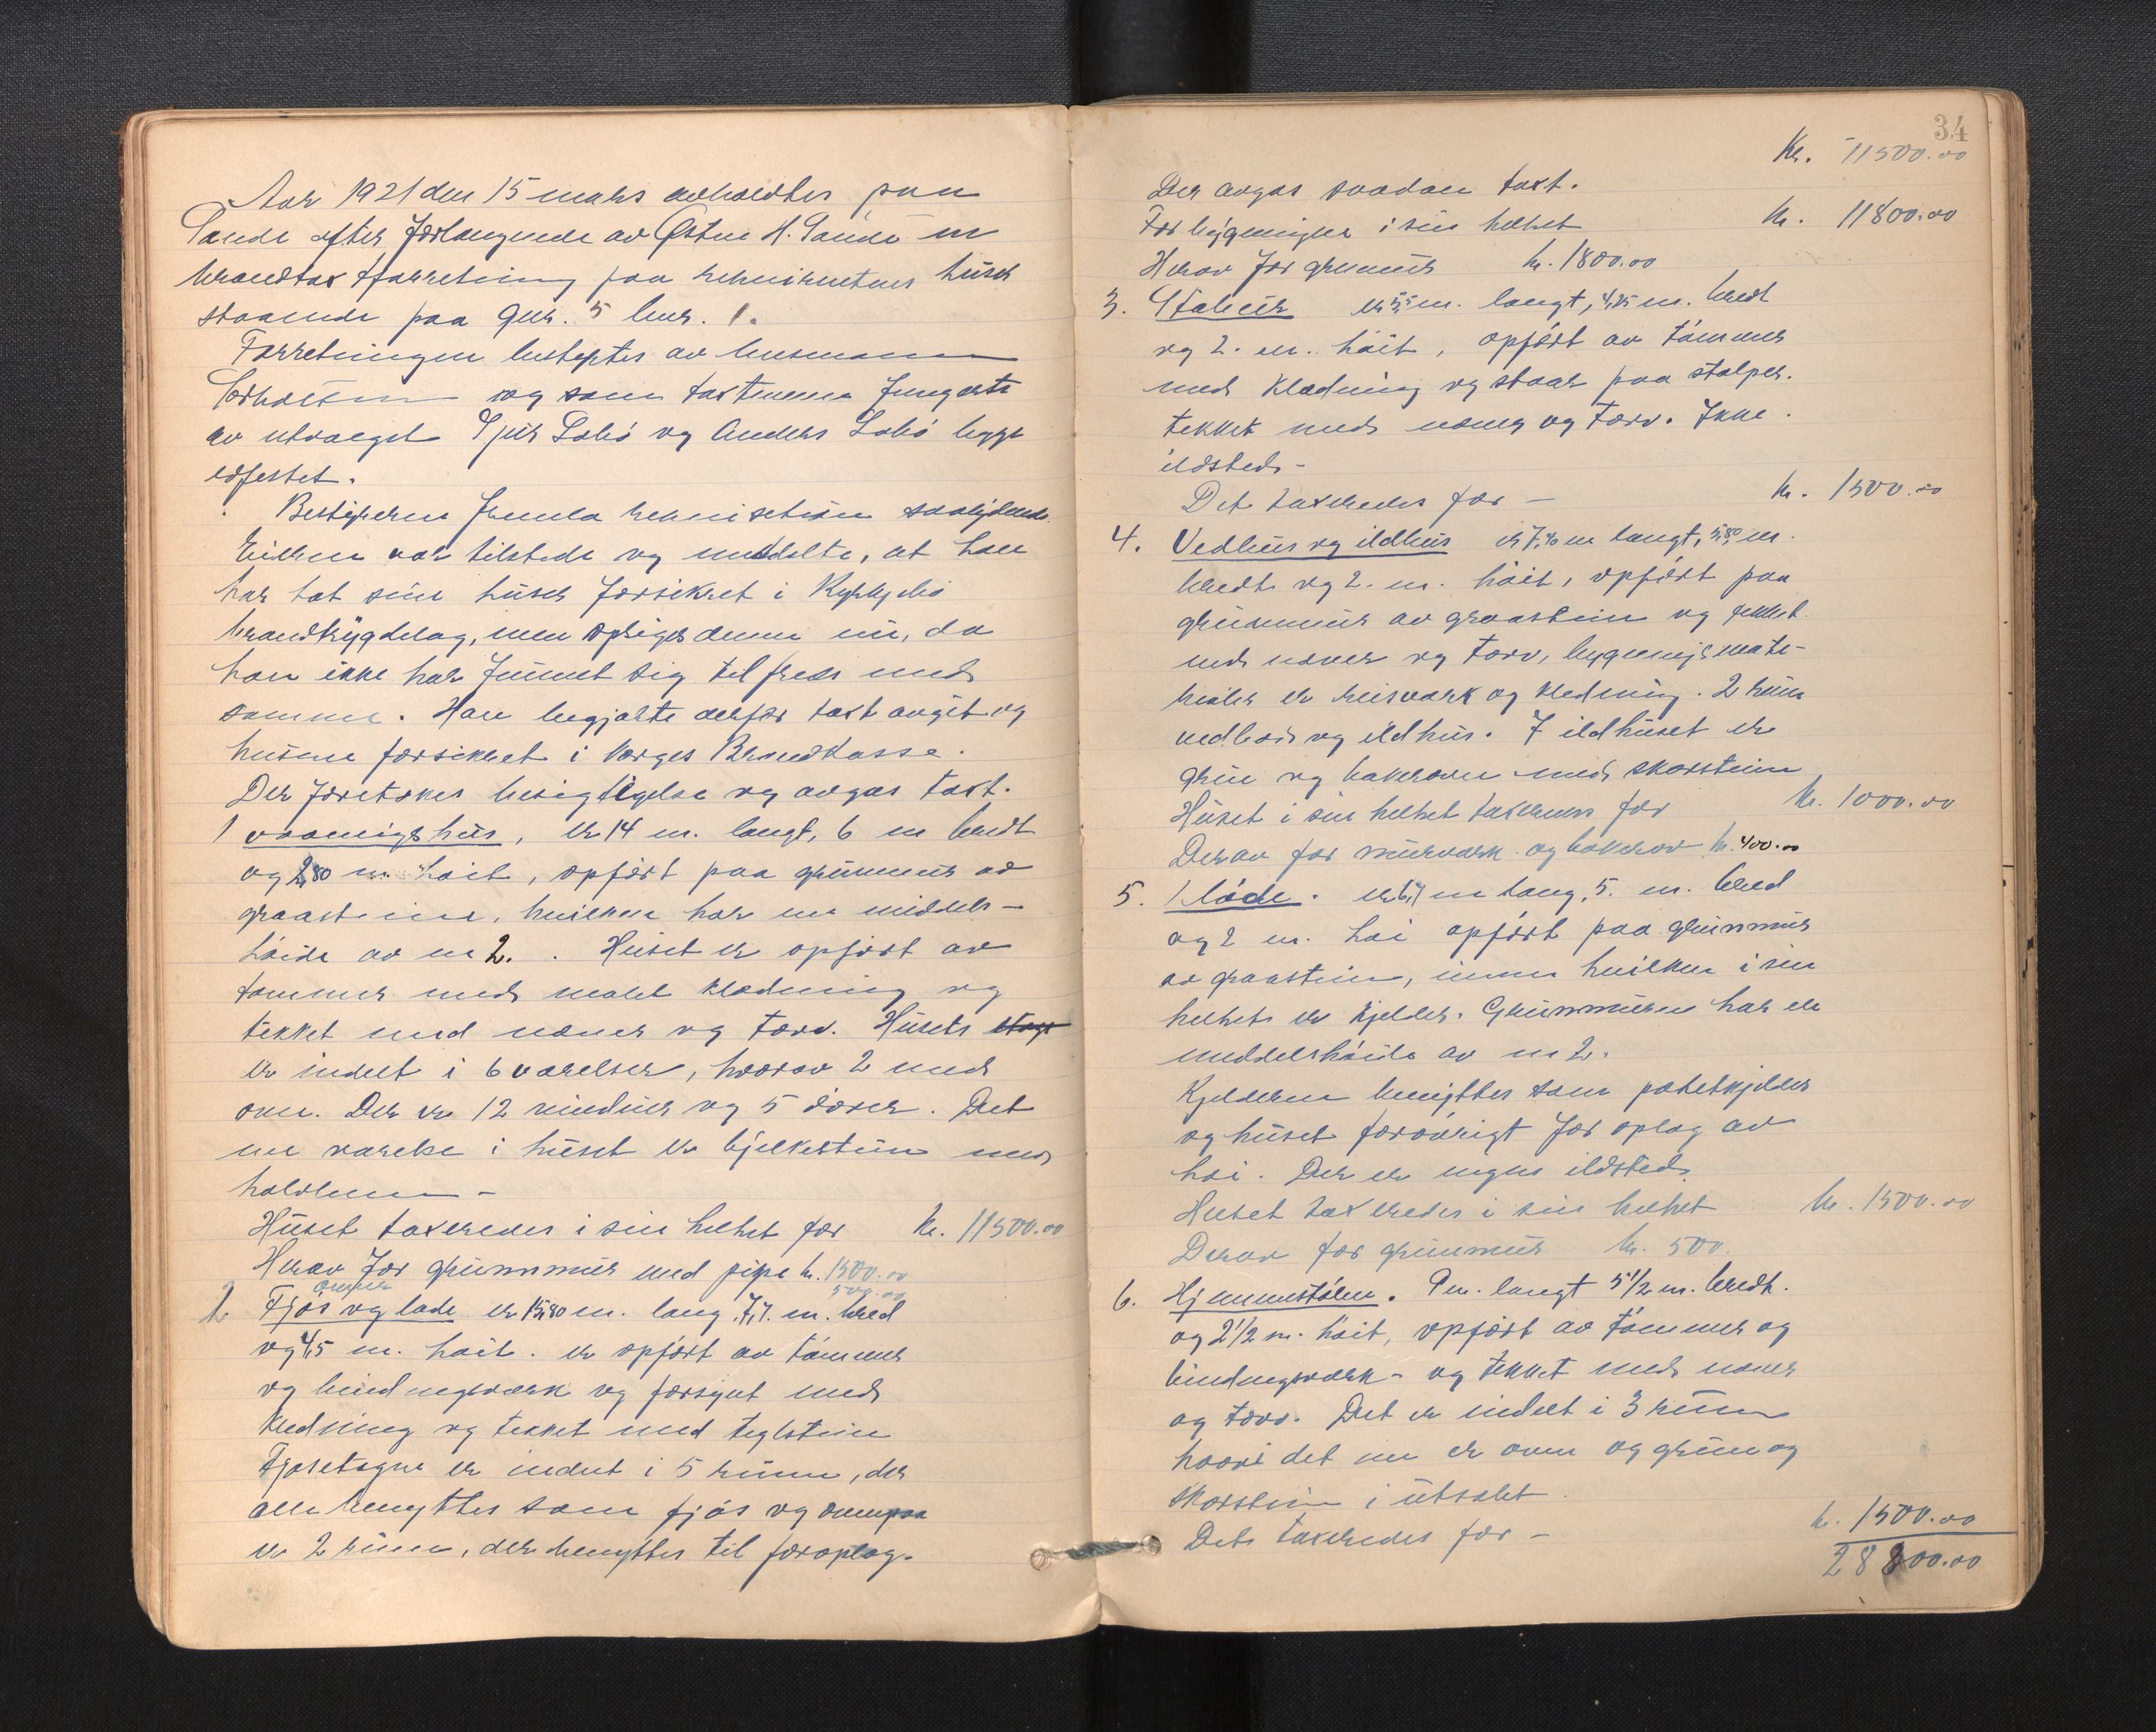 Aar 1921 den 15 mars avholdtes paa
Sande efter forlangende av Østen H. Sande en
brandtakstforretning paa rekvirentens huser
staaende paa Gnr. 5 bnr. 1.
Forretningen bestyrtes av lensmann
og som takstmenn fungerte
av utvalget Sjur Løbø og Anders Løbø begge
edfestet.
Bestyreren fremla rekvisition saalydende
Eieren var tilstede og meddelte, at han
har tat sine huser forsikret i
brandtrygdelag, men opsiger denne nu, da
han ikke har funnet sig tilfreds med
samme. Han begjærte derfor takst avgit og
husene forsikret i Norges Brandkasse.
Der foretokes besigtigelse og avgas takst.
1 vaaningshus, er 14 m. langt, 6 m bredt
og 2,80 m. høit, opført paa grunmur av
graastein, hvilken har en middels-
høide av m 2. . Huset er opført av
tømmer med malt klædning og
tekket med næver og torv. Husets etage
er indelt i 6 værelser, hvorav 2 med
ovn. Der er 12 vinduer og 5 dører. Det
ene værelse i huset er bjelkestue med
halvlem -
Huset takseredes i sin helhet for kr. 11500.00
Herav for grunnmur med pipe kr. 1500.00
ovner 500.00
2 Fjøs og lade er 15,80 m. lang. 7,7. m. bred
og 4,5 m. høit. er opført av tømmer
og bindingsverk og forsynt med
kledning og tekket med teglstein
Fjøsetagen er indelt i 5 rum, der
alle benyttes som fjøs og ovenpaa
er 2 rum, der benyttes til foroplag.
34
Kr. 11500.00
Der avgas saadan takst.
For bygningen i sin helhet kr. 11800.00
Herav for grunmur kr. 1800.00
3. Stabur er 5,5 m. langt, 4,25 m. bredt
og 2. m. høit, opført av tømmer
med klædning og staar paa stolper.
tekket med næver og torv. Ikke
ildsted -
Det takseredes for - kr. 1500.00
4. Vedhus og ildhus er 7,40 m langt, 5,80 m.
bredt og 2. m. høit, opført paa
grunmur av graastein og tekket
med næver og torv, bygningsmate-
rialer er reisverk og kledning. 2 rum
vedbod og ildhus. I ildhuset er
grue og bakerovn med skorstein
Huset i sin helhet takseres for kr. 1000.00
Derav for murverk og bakerov kr. 400.00
5. 1 løde. er 6,1 m lang, 5. m. bred
og 2 m. høi opført paa grunmur
av graastein, innen hvilken i sin
helhet er kjelder. Grunmuren har en
middelshøide av m 2.
Kjelderen benyttes som potetkjelder
og huset forøvrigt for oplag av
høi. Der er ingen ildsted.
Huset takseredes i sin helhet kr. 1500.00
Derav for grunmur kr. 500.
6. Hjemmestølen. 9 m. langt 5 1/2 m. bredt.
og 2 1/2 m. høit, opført av tømmer og
bindingsverk - og tekket med næver
og torv. Det er indelt i 3 rum
hvori det ene er ovn og grue og
skorstein i utvalet.
Det takseredes for - kr. 1500.00
28800.00